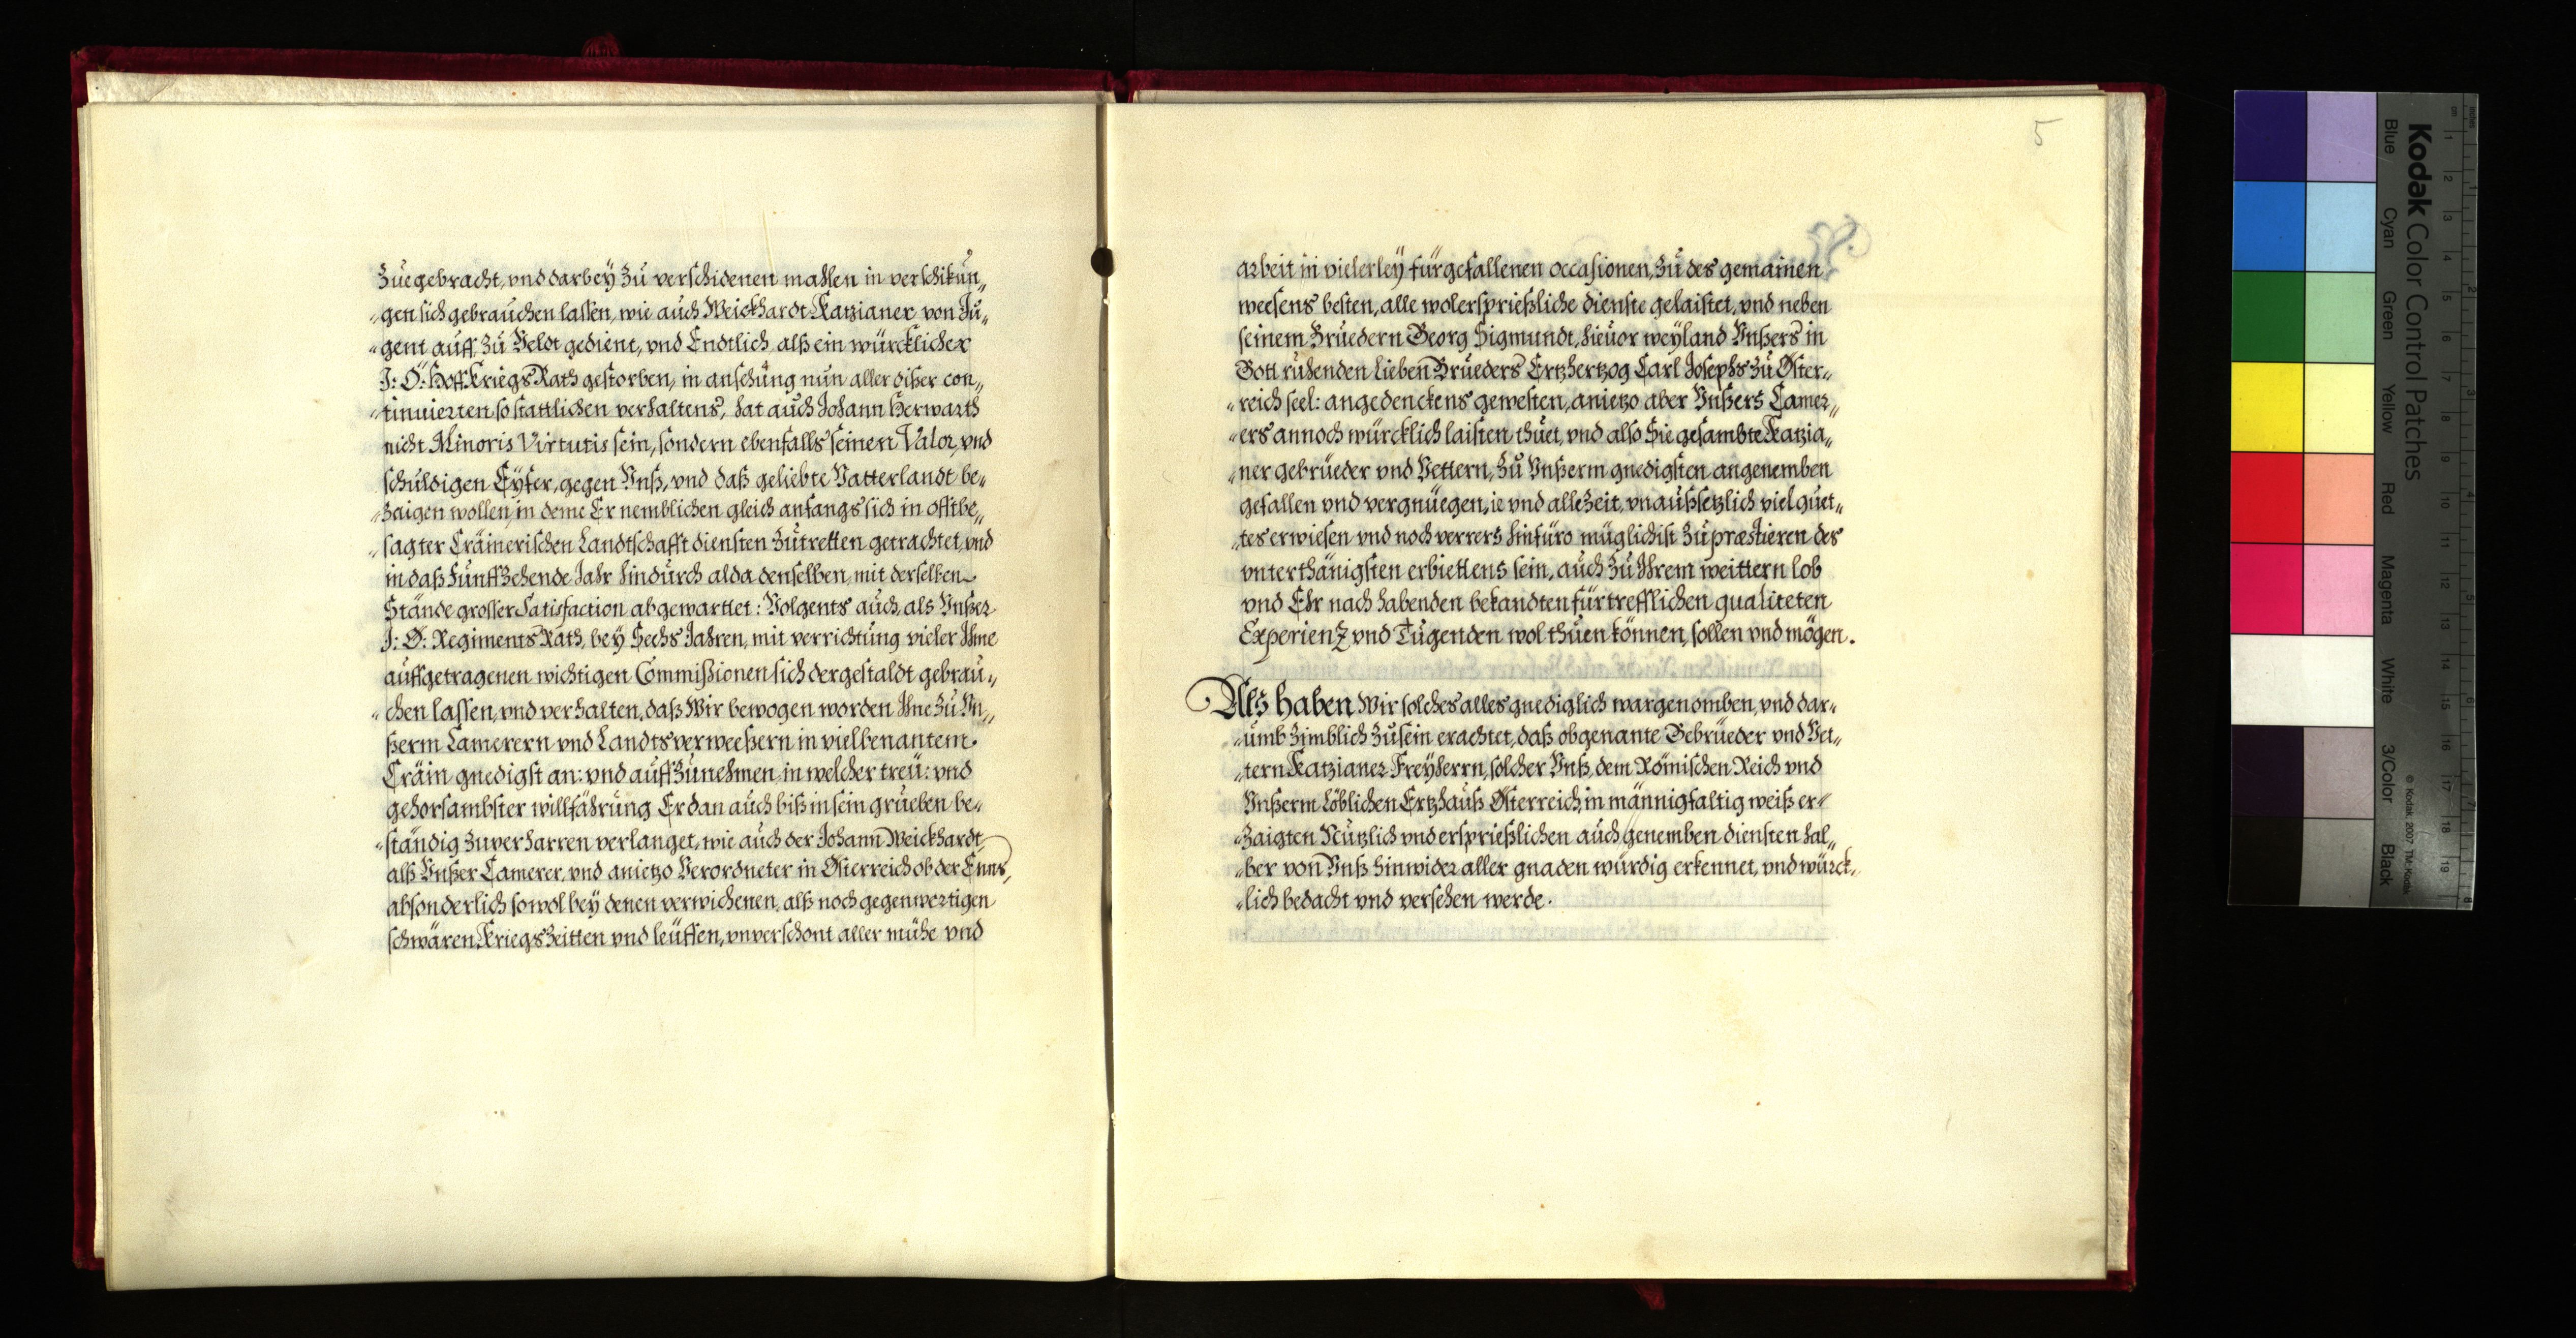 Zuegebracht, vnd darbeÿ Zu verschidenen mahlen in verschikun„
„gen sich gebrauchen lassen, wie auch Weickhardt Katzianer von Ju„
„gent auff, Zu Veldt gedient, vnd Endtlich alß ein würcklicher
I: Ö: Hoff KriegsRath gestorben, in ansehung nun aller diser con„
„tinuierten so stattlichen verhaltens, hat auch Johann Herwarth
nicht Minoris Virtutis sein, sondern ebenfalls seinen Valor, vnd
schuldigen Eÿfer, gegen Vnß, vnd daß geliebte Vatterlandt be„
„Zaigen wollen, in deme Er nemblichen gleich anfangs sich in offtbe„
„sagter Crämerischen Landtschafft diensten Zutretten getrachtet, vnd
in daß Funffzehende Jahr hindurch alda denselben, mit derselben
Stände grosser Satisfaction abgewarttet: Volgents auch, als Vnßer
I: Ö: Regiments Rath, bey Sechs Jahren, mit verrichtung vieler Ihme
auffgetragenen wichtigen Commißionen sich dergestaldt gebrau„
„chen lassen, vnd verhalten, daß Wir bewogen worden Ihne Zu Vn„
ßerm Camerern vnd Landtsverweeßern in vielbenantem
Cräin gnedigst an: vnd auffZunehmen, in welcher treü: vnd
gehorsambster willfährung Er dan auch biß in sein grueben be„
„ständig Zuverharren verlanget, wie auch der Johann Weickhardt,
alß Vnßer Camerer, vnd anietzo Verordneter in Österreich ob der Enns,
absonderlich sowol bey denen verwichenen, alß noch gegenwertigen
schwären KriegsZeitten vnd leüffen, vnverschont aller mühe vnd
5
arbeit in vielerleÿ fürgefallenen occasionen, Zu des gemainen
weesens besten, alle wolersprießliche dienste gelaistet, vnd neben
seinem Bruedern Georg Sigmundt, hieuor weyland Vnßers in
Gott ruhenden lieben Brueders Ertzhertzog Carl Josephs Zu Öster„
„reich seel: angedenckens gewesten, anietzo aber Vnßers Camer„
„ers annoch würcklich laisten thuet, vnd also Sie gesambte Katzia„
„ner gebrüeder vnd Vettern, Zu Vnßerm gnedigsten angenemben
gefallen vnd vergnüegen, ie vnd alleZeit, vnaußsetzlich viel guet„
„tes erwiesen vnd noch verrers hinfüro müglichist Zu præstieren des
vnterthänigsten erbiettens sein, auch Zu Ihrem weittern lob
vnd Ehr nach habenden bekandten fürtrefflichen qualiteten
ExperienZ vnd Tugenden wol thuen können, sollen vnd mögen.
Alß haben Wir solches alles gnediglich wargenomben, vnd dar„
„umb Zimblich Zusein erachtet, daß obgenante Gebrüeder vnd Vet„
„tern Katzianer Freyherrn, solcher Vnß, dem Römischen Reich vnd
Vnßerm Löblichen Ertzhauß Österreich, in männigfaltig weiß er„
„Zaigten Nutzlich vnd ersprießlichen auch genemben diensten hal„
„ber von Vnß hinwider aller gnaden würdig erkennet, vnd würck„
„lich bedacht vnd versehen werde.
Kodak Color Control Patches
Blue Cyan Green Yellow Red Magenta White 3/Color Black
© Kodak, 2007 TM: Kodak